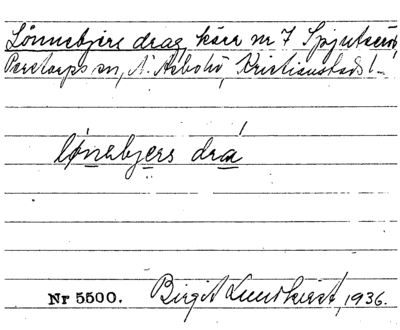 Lönnebjers drag, kärr nr 7 Spjutseröd,
Perstorps sn, N. Åsbo hd, Kristianstads l.
lö́nebjers drá
Nr 5500. Birgit Lundkvist, 1936.